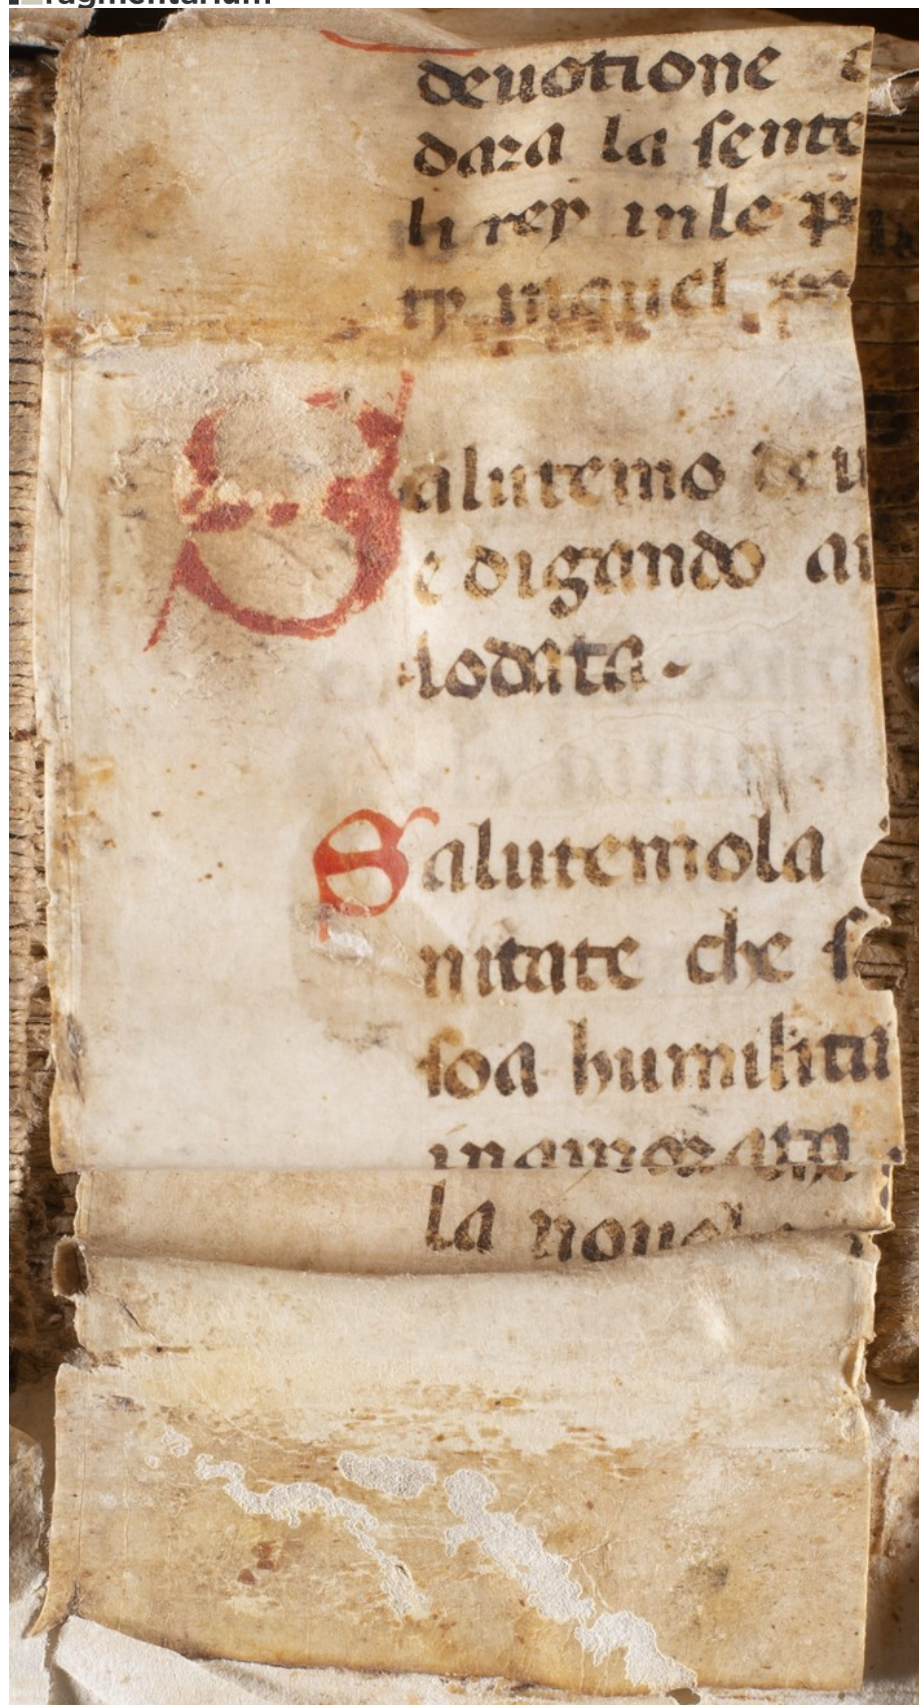 ragmentarium
deuotione
dara la sente
li rey in le p
ty miguel
Salutemo deu
e digando
lodata.
Salutemo la
nitate che
soa humilita
la nouel